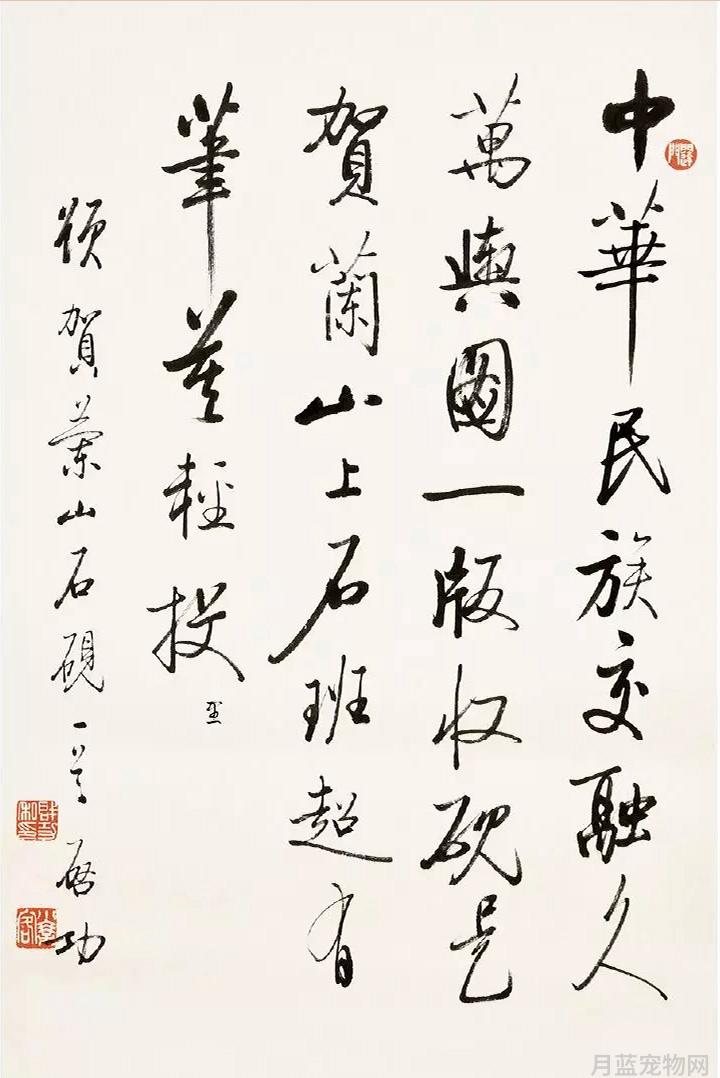 中華民族交融久
萬輿圖一版收硯是
賀蘭山上石班超有
筆莫輕投 里
題賀蘭山石硯一首 啟功
月蓝宠物网